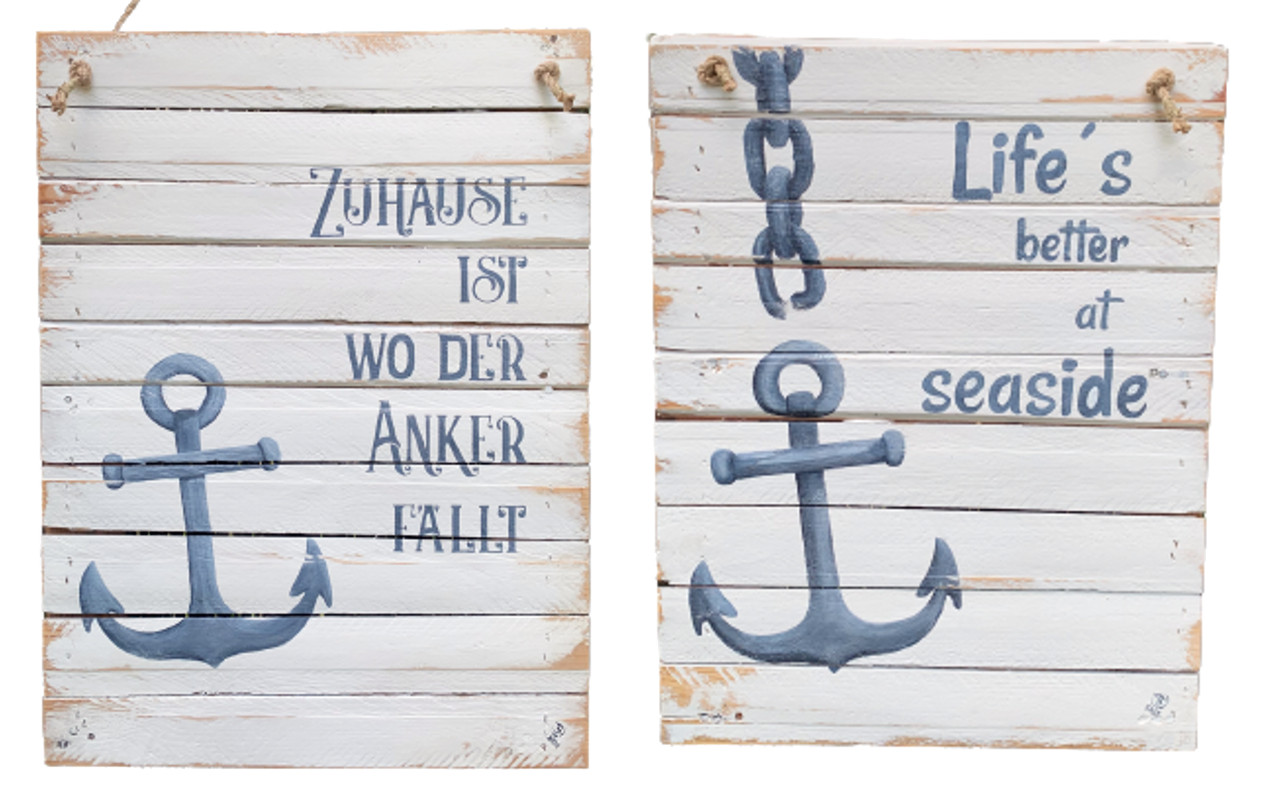 ZUHAUSE
IST
WO DER
ANKER
FÄLLT
Life´s
better
at
seaside